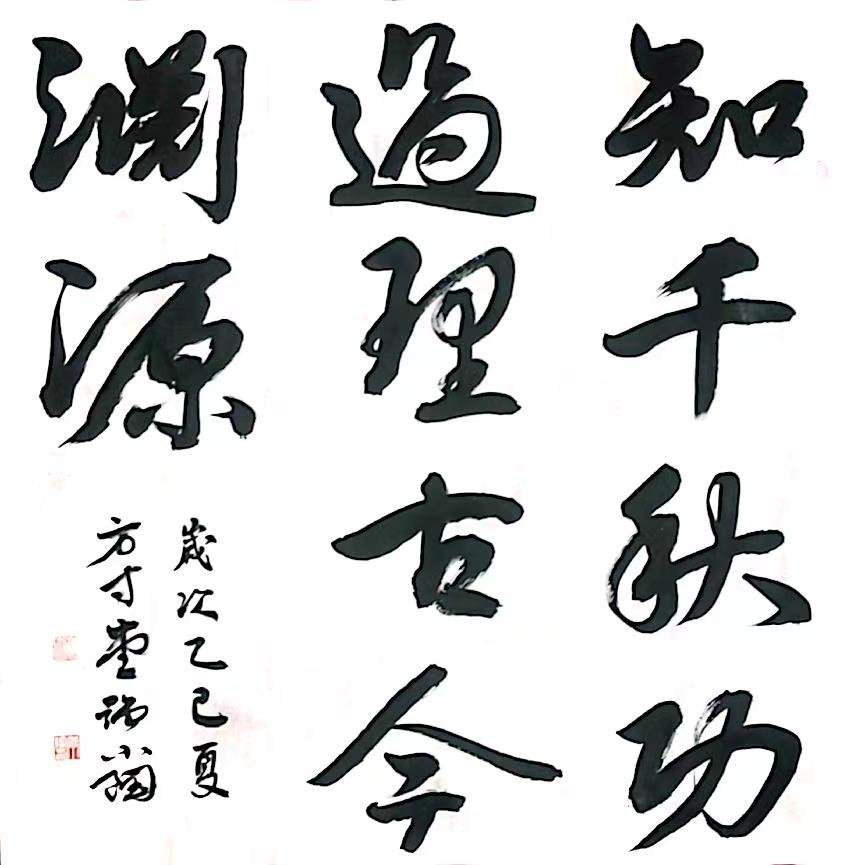 知千秋功
過理古今
渊源
歲次乙巳夏
方寸堂